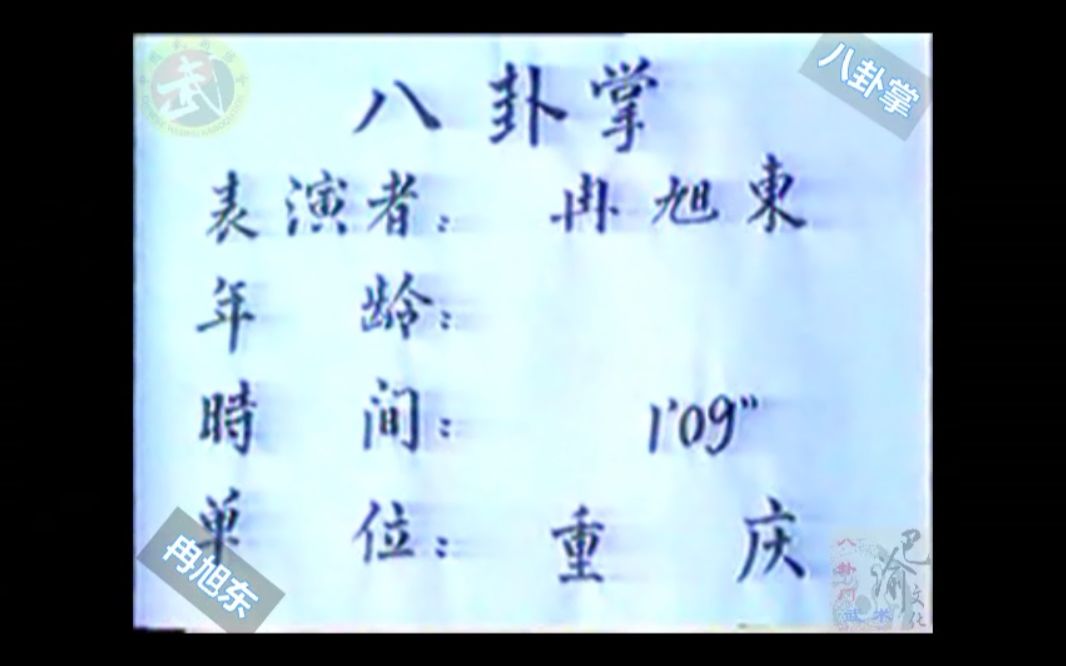 八卦掌
八卦掌
表演者： 冉旭東
年齡：
時间： 1'09"
单位： 重庆
冉旭东
八卦门
武术
巴渝
文化